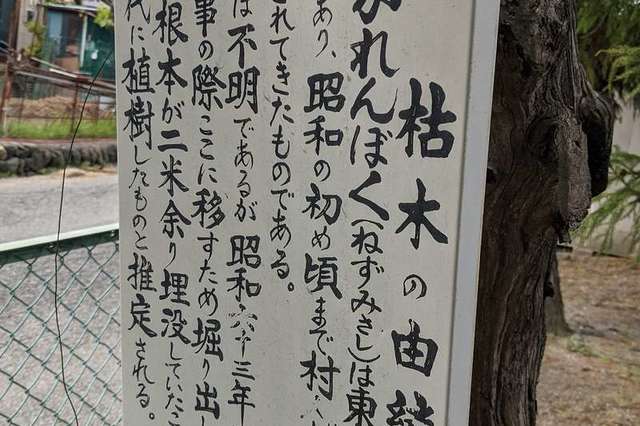 枯木の由
かれんぼく(ねずみさし)は東
あり、昭和の初め頃まで村
れてきたものである。
は不明であるが昭和六十三年
事の際ここに移すため掘り出し
根本が二米余り埋没していたこ
代に植樹したものと推定される。